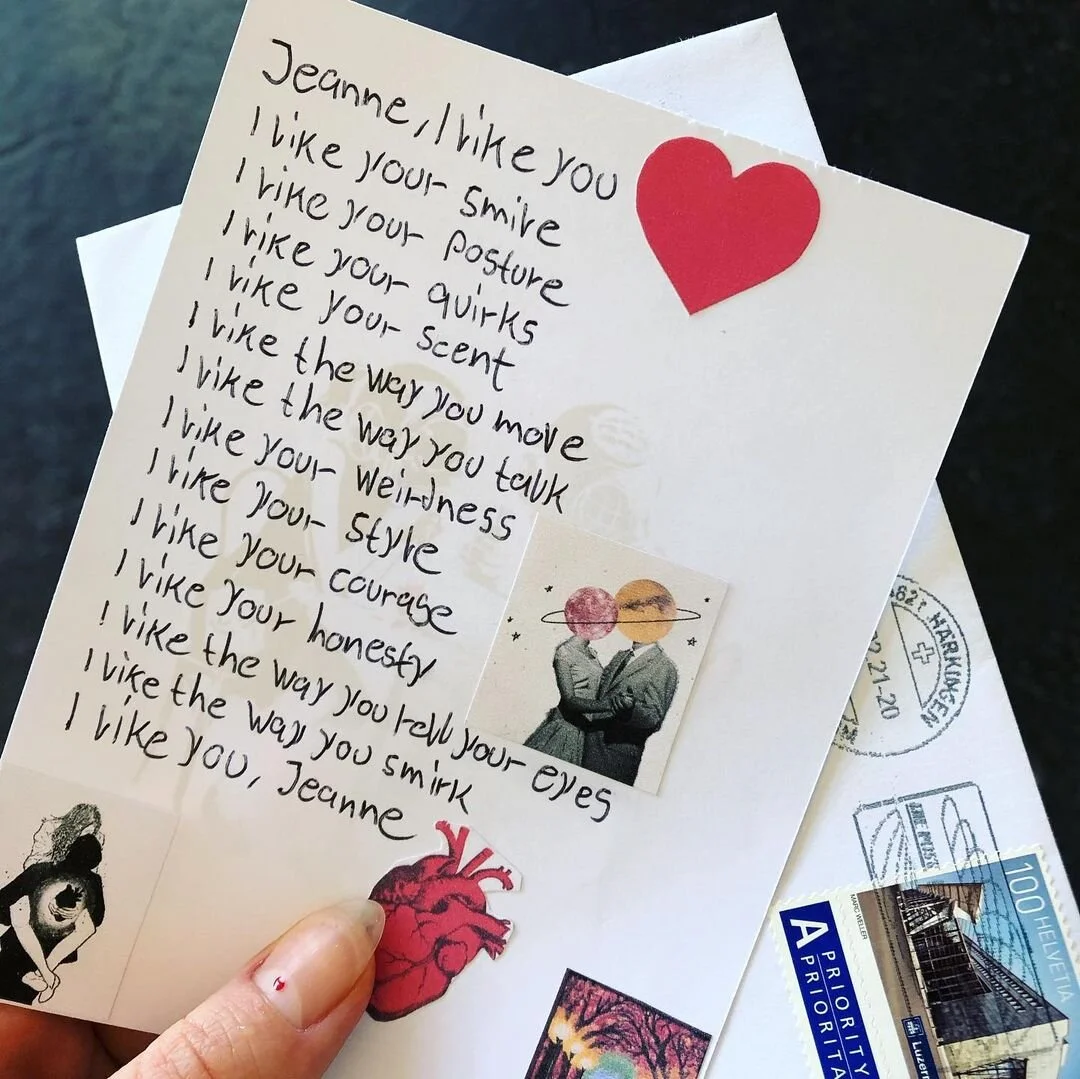 Jeanne, I like you
I like your smile
I like your posture
I like your quirks
I like your scent
I like the way you move
I like the way you talk
I like your weirdness
I like your style
I like your courage
I like your honesty
I like the way you roll your eyes
I like the way you smirk
I like you, Jeanne
HÄRKINGEN
21-20
DIE POST
100 HELVETIA
MARC WELLER
A PRIORITY
PRIORITA
Luzern